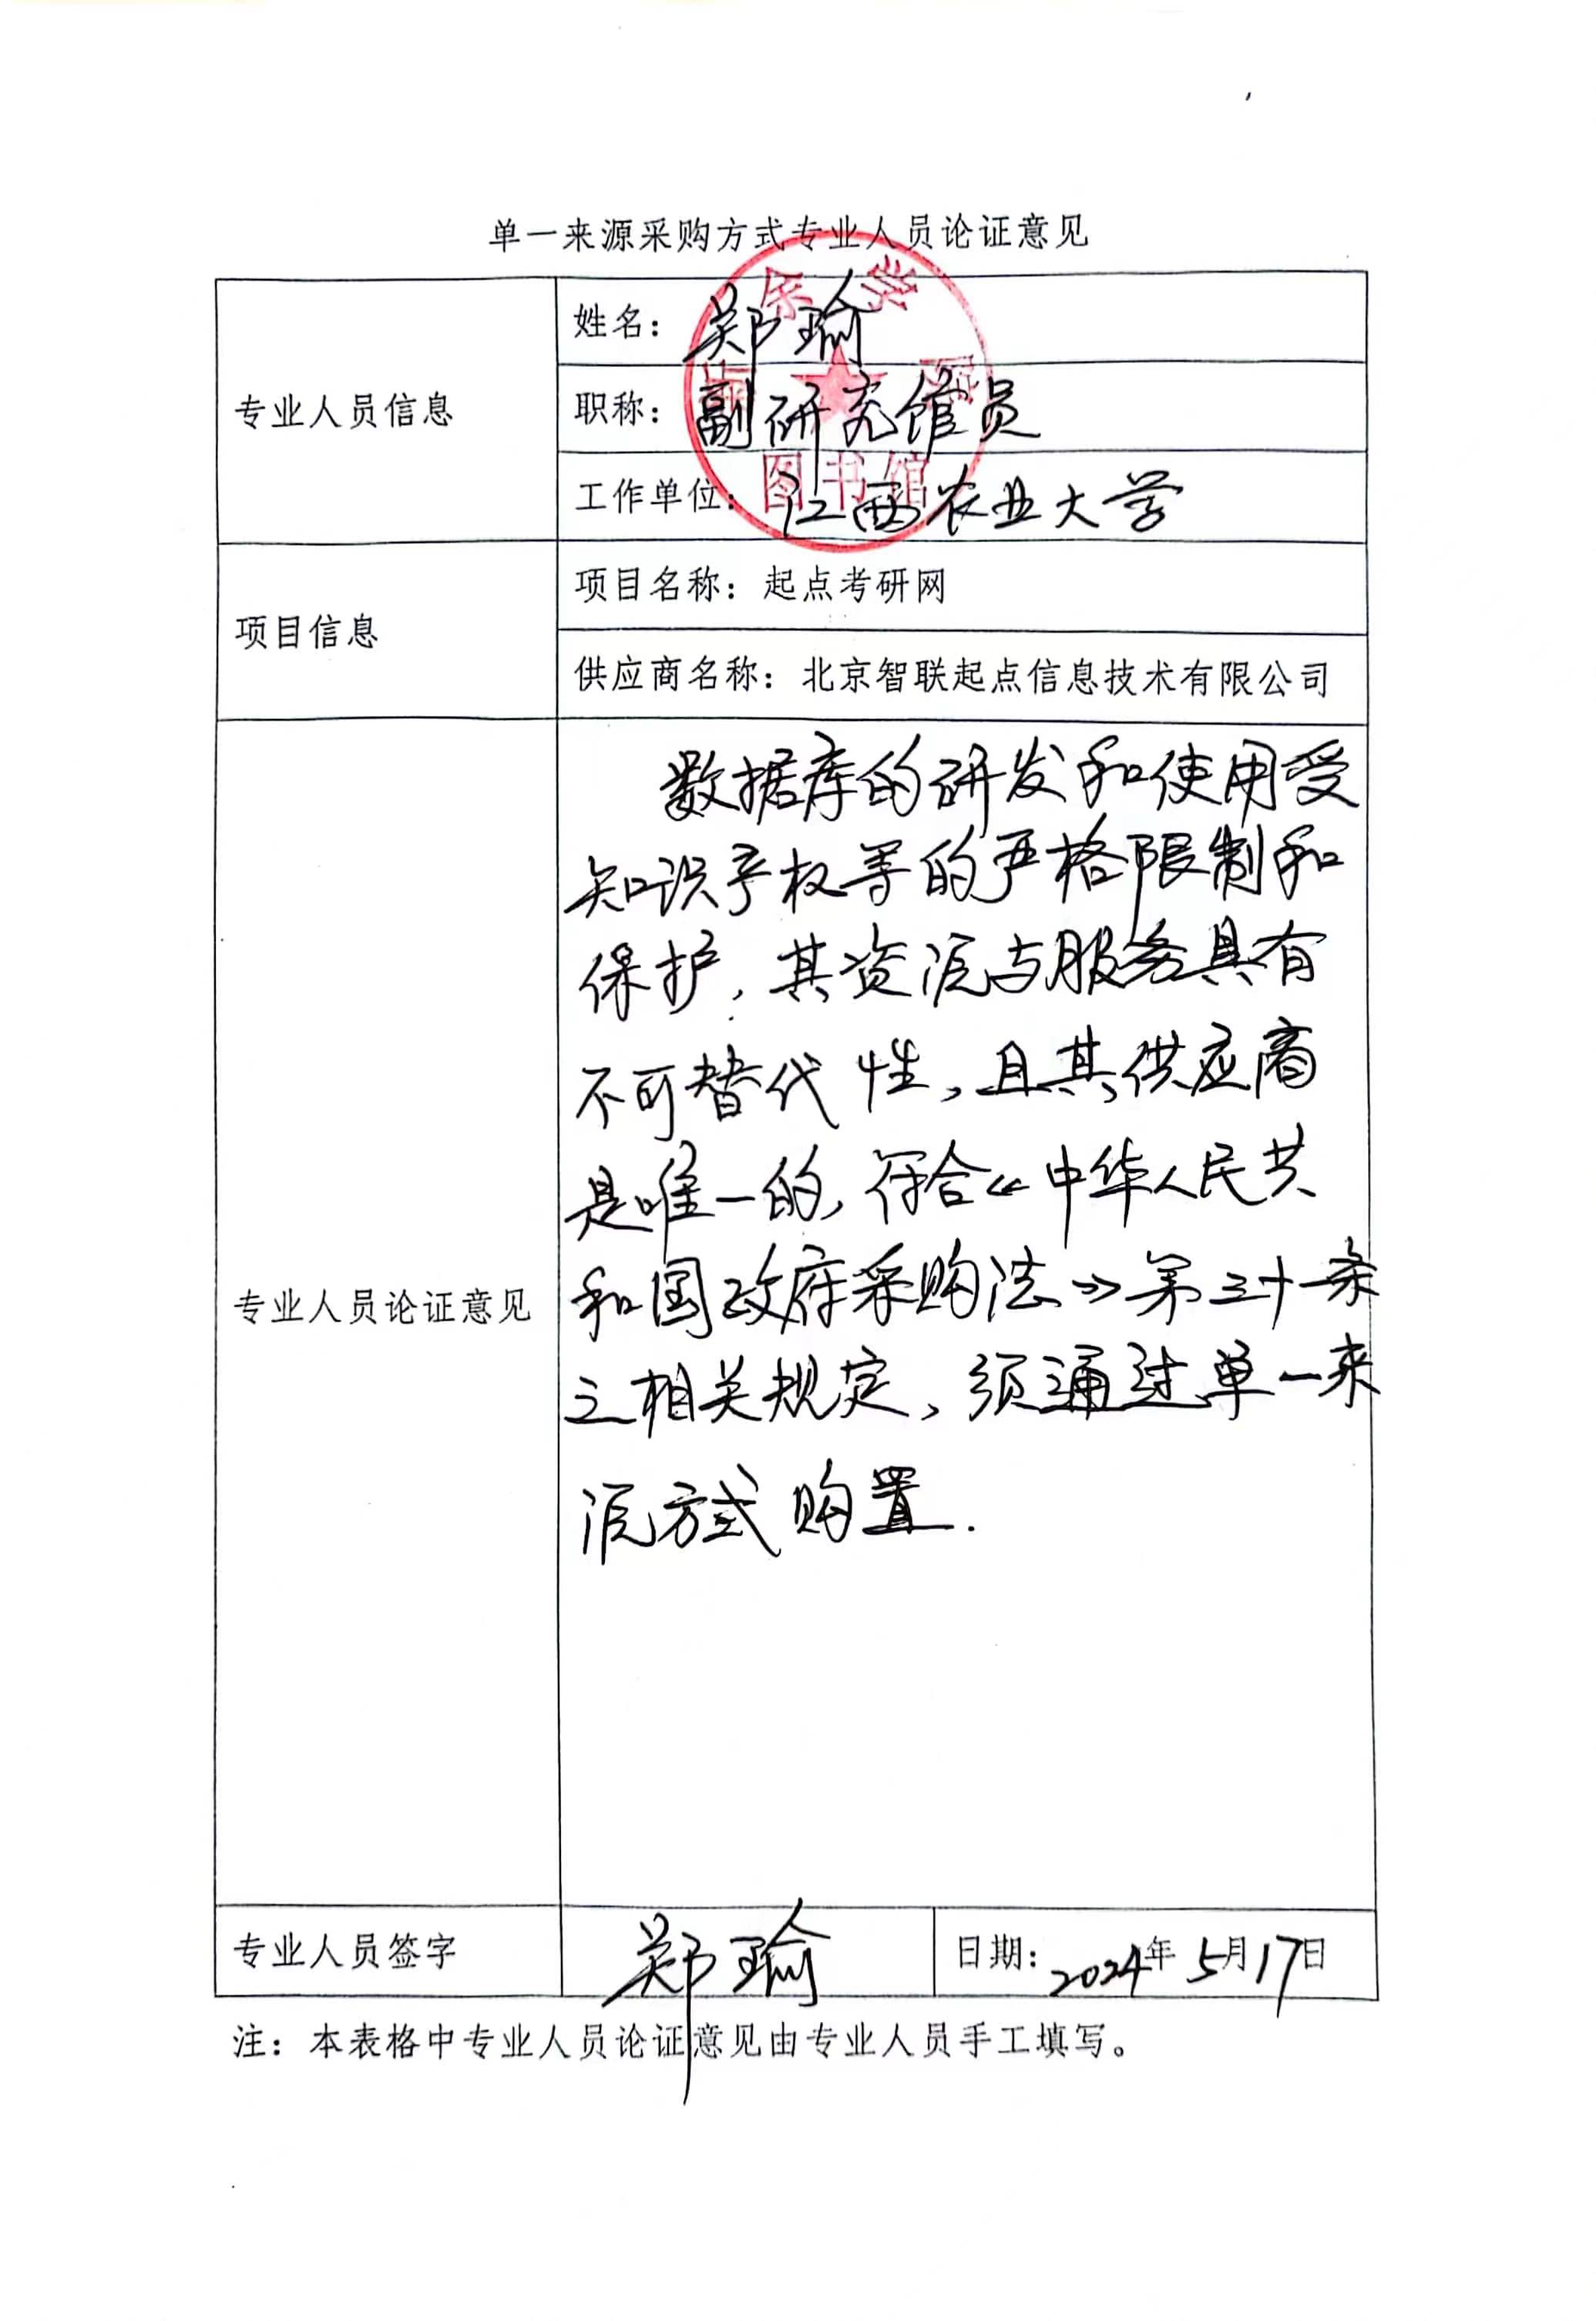 单一来源采购方式专业人员论证意见
专业人员信息
姓名：郑瑜
职称：副研究馆员
工作单位：江西农业大学
图书馆
项目信息
项目名称：起点考研网
供应商名称：北京智联起点信息技术有限公司
专业人员论证意见
数据库的研发和使用受
知识产权等的严格限制和
保护，其资源与服务具有
不可替代性，且其供应商
是唯一的，符合《中华人民共
和国政府采购法》第三十一条
之相关规定，须通过单一来
源方式购置.
专业人员签字
郑瑜
日期：2024年5月17日
注：本表格中专业人员论证意见由专业人员手工填写。